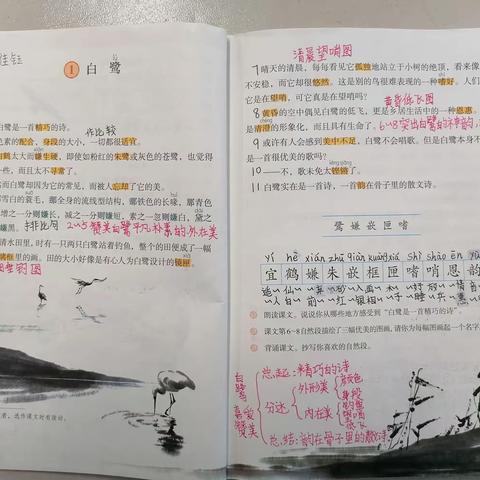 1 白鹭
白鹭是一首精巧的诗。
作比较
色素的配合，身段的大小，一切都很适宜。
白鹤太大而嫌生硬，即使如粉红的朱鹭或灰色的苍鹭，也觉得
一些，而且太不寻常了。
然而白鹭却因为它的常见，而被人忘却了它的美。
雪白的蓑毛，那全身的流线型结构，那铁色的长喙，那青色
增之一分则嫌长，减之一分则嫌短，素之一忽则嫌白，黛之
嫌黑。
排比句
2-5赞美白鹭平凡朴素的外在美
清水田里，时有一只两只白鹭站着钓鱼，整个的田便成了一幅
框里的画。田的大小好像是有心人为白鹭设计的镜匣。
钓鱼图
清晨望哨图
7 晴天的清晨，每每看见它孤独地站立于小树的绝顶，看来像
不安稳，而它却很悠然。这是别的鸟很难表现的一种嗜好。人们
它是在望哨，可它真是在望哨吗？
黄昏低飞图
8 黄昏的空中偶见白鹭的低飞，更是乡居生活中的一种恩惠。
是清澄的形象化，而且具有生命了。
6-8突出白鹭的
9 或许有人会感到美中不足，白鹭不会唱歌。但是白鹭本身不
一首很优美的歌吗？
10 ——不，歌未免太铿锵了。
11 白鹭实在是一首诗，一首韵在骨子里的散文诗。
鹭嫌嵌匣嗜
yí hè xián zhū qiàn kuàng xiá shì shào ēn yùn
宜鹤嫌朱嵌框匣嗜哨恩韵
朗读课文。说说你从哪些地方感受到“白鹭是一首精巧的诗”。
课文第6~8自然段描绘了三幅优美的图画，请你为每幅图画起一个名字。
背诵课文。抄写你喜欢的自然段。
白鹭
喜爱
赞美
总起：精巧的诗
分述
外形美
颜色
身段
内在美
钓鱼
望哨
低飞
总结：韵在骨子里的散文诗
者，选作课文时有改动。